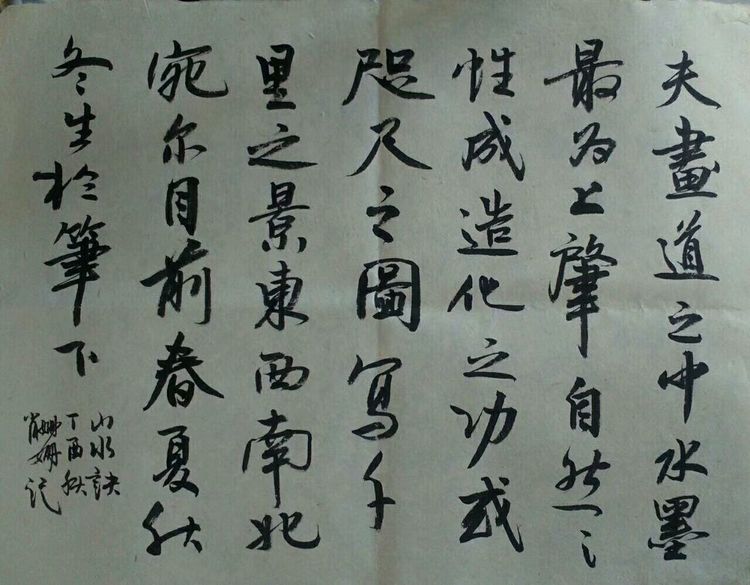 夫畫道之中水墨
最为上肇自然之
性成造化之功或
咫尺之圖寫千
里之景東西南北
宛尔目前春夏秋
冬生於筆下
山水訣
丁酉秋
肖姗姗记